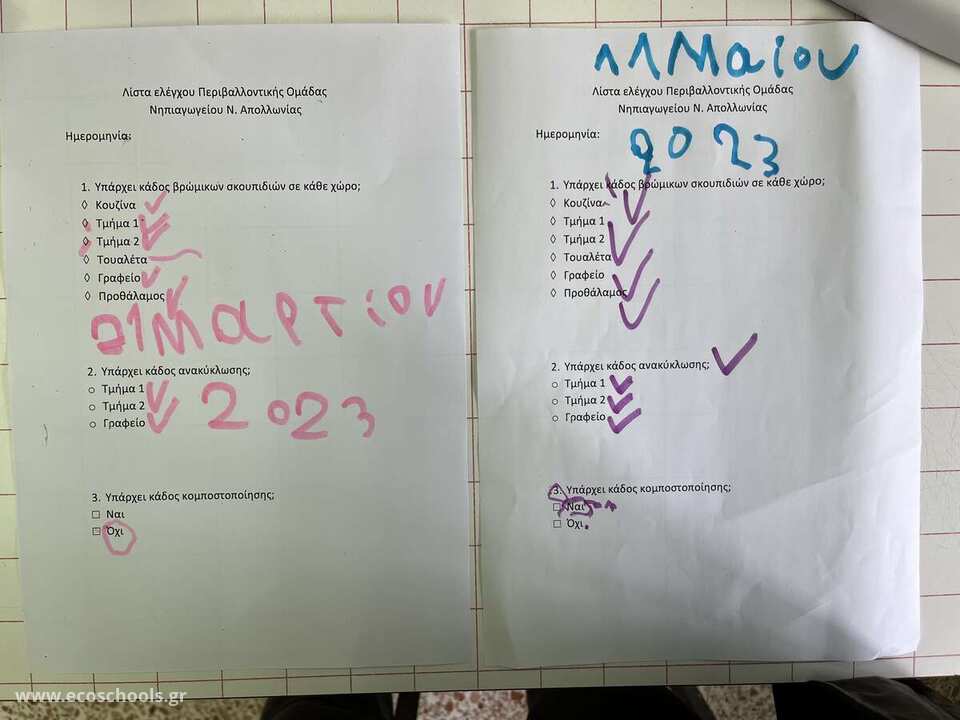 Λίστα ελέγχου Περιβαλλοντικής Ομάδας
Νηπιαγωγείου Ν. Απολλωνίας
Ημερομηνία:
1. Υπάρχει κάδος βρώμικων σκουπιδιών σε κάθε χώρο;
◊ Κουζίνα
◊ Τμήμα 1
◊ Τμήμα 2
◊ Τουαλέτα
◊ Γραφείο
◊ Προθάλαμος
01 Μαρτίου
2. Υπάρχει κάδος ανακύκλωσης;
○ Τμήμα 1
○ Τμήμα 2
○ Γραφείο
2023
3. Υπάρχει κάδος κομποστοποίησης;
□ Ναι
□ Όχι
11 Μαίου
Λίστα ελέγχου Περιβαλλοντικής Ομάδας
Νηπιαγωγείου Ν. Απολλωνίας
Ημερομηνία:
2023
1. Υπάρχει κάδος βρώμικων σκουπιδιών σε κάθε χώρο;
◊ Κουζίνα
◊ Τμήμα 1
◊ Τμήμα 2
◊ Τουαλέτα
◊ Γραφείο
◊ Προθάλαμος
2. Υπάρχει κάδος ανακύκλωσης;
○ Τμήμα 1
○ Τμήμα 2
○ Γραφείο
3. Υπάρχει κάδος κομποστοποίησης;
□ Ναι
□ Όχι
www.ecoschools.gr